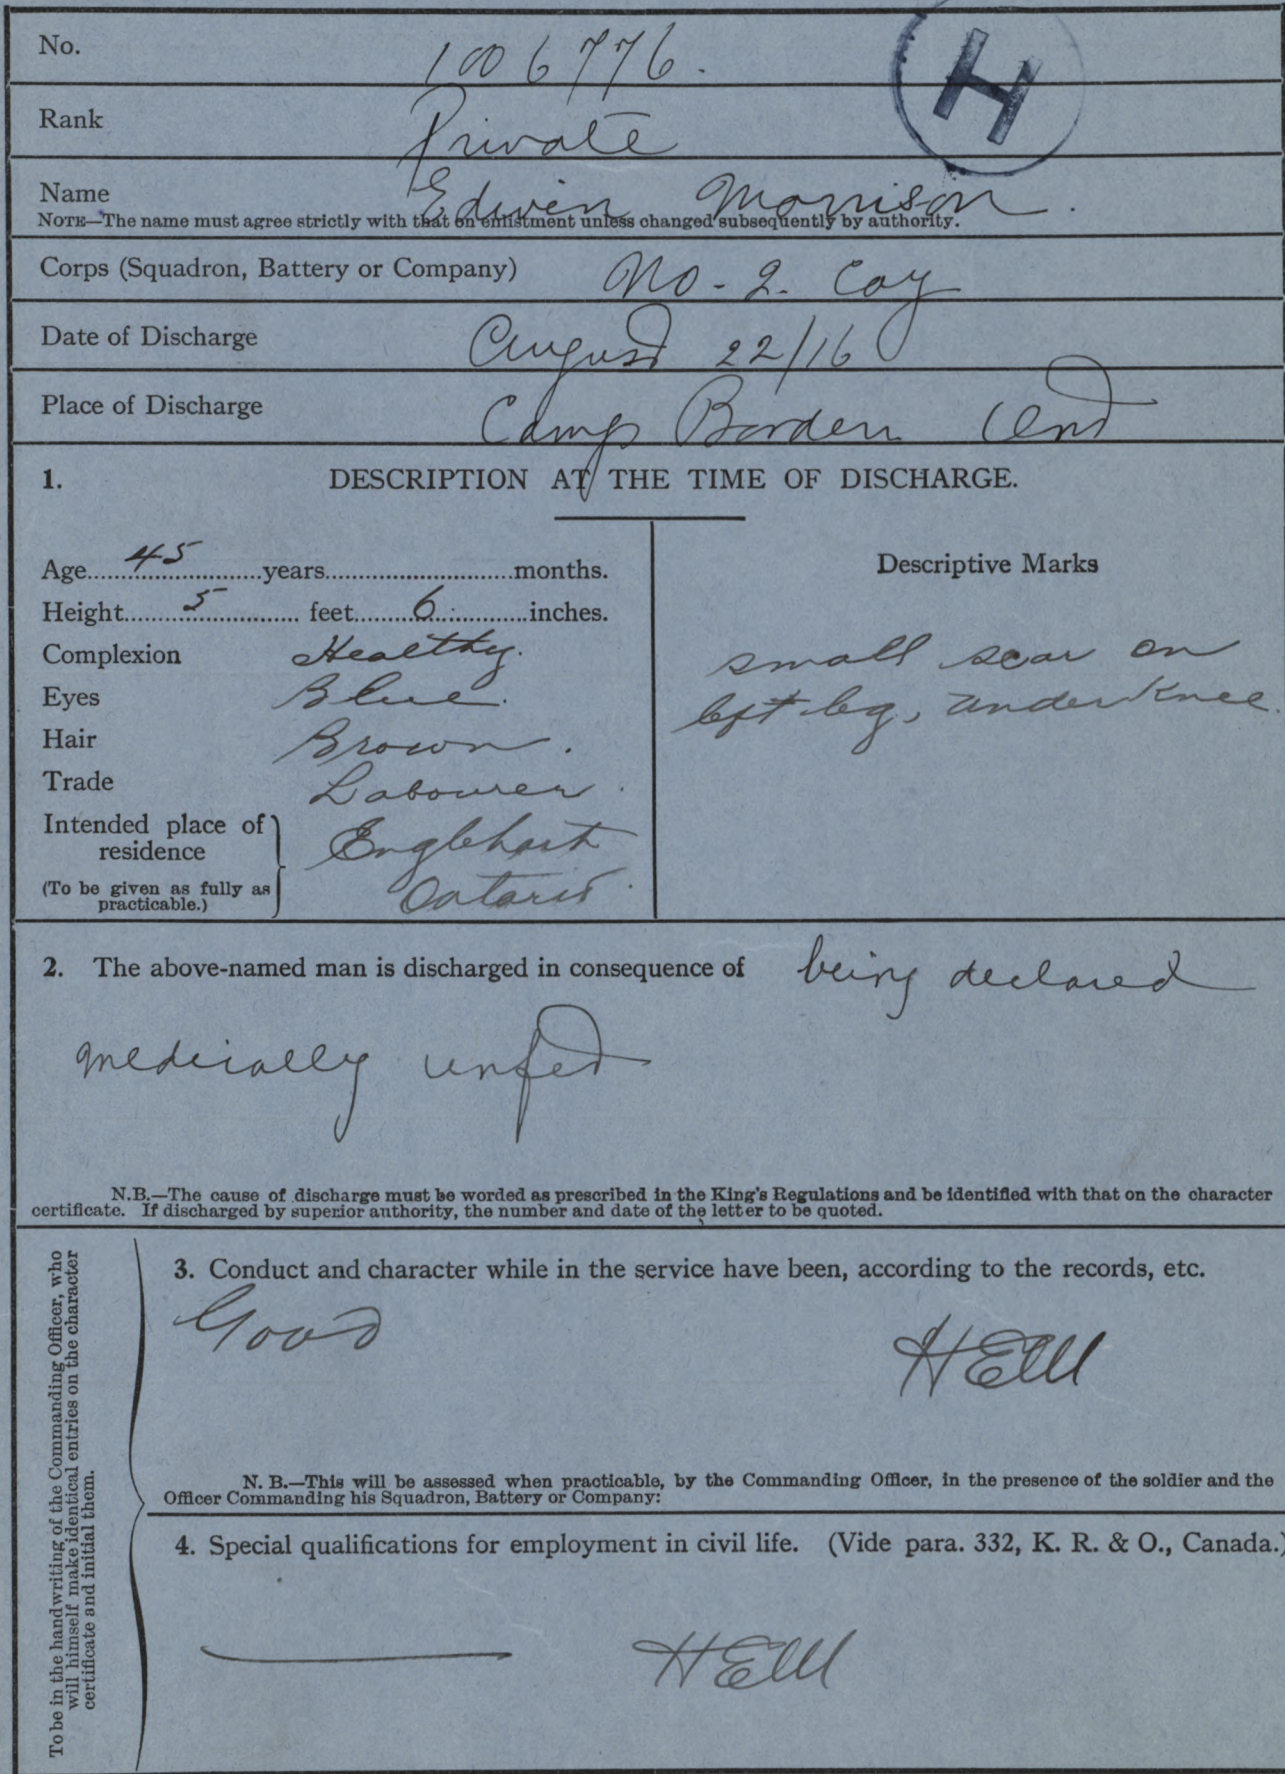 No. 1006776.
H
Rank Private
Name Edwin Morrison.
NOTE—The name must agree strictly with that on enlistment unless changed subsequently by authority.
Corps (Squadron, Battery or Company) No. 2. Coy
Date of Discharge August 22/16
Place of Discharge Camp Borden Ont
1. DESCRIPTION AT THE TIME OF DISCHARGE.
Age 45 years months.
Height 5 feet 6 inches.
Complexion Healthy.
Eyes Blue.
Hair Brown.
Trade Labourer.
Intended place of residence Englehart
(To be given as fully as practicable.) Ontario.
Descriptive Marks
small scar on
left leg, under Knee.
2. The above-named man is discharged in consequence of being declared
medically unfit
N.B.—The cause of discharge must be worded as prescribed in the King's Regulations and be identified with that on the character
certificate. If discharged by superior authority, the number and date of the letter to be quoted.
To be in the handwriting of the Commanding Officer, who
will himself make identical entries on the character
certificate and initial them.
3. Conduct and character while in the service have been, according to the records, etc.
Good
N. B.—This will be assessed when practicable, by the Commanding Officer, in the presence of the soldier and the
Officer Commanding his Squadron, Battery or Company:
4. Special qualifications for employment in civil life. (Vide para. 332, K. R. & O., Canada.)